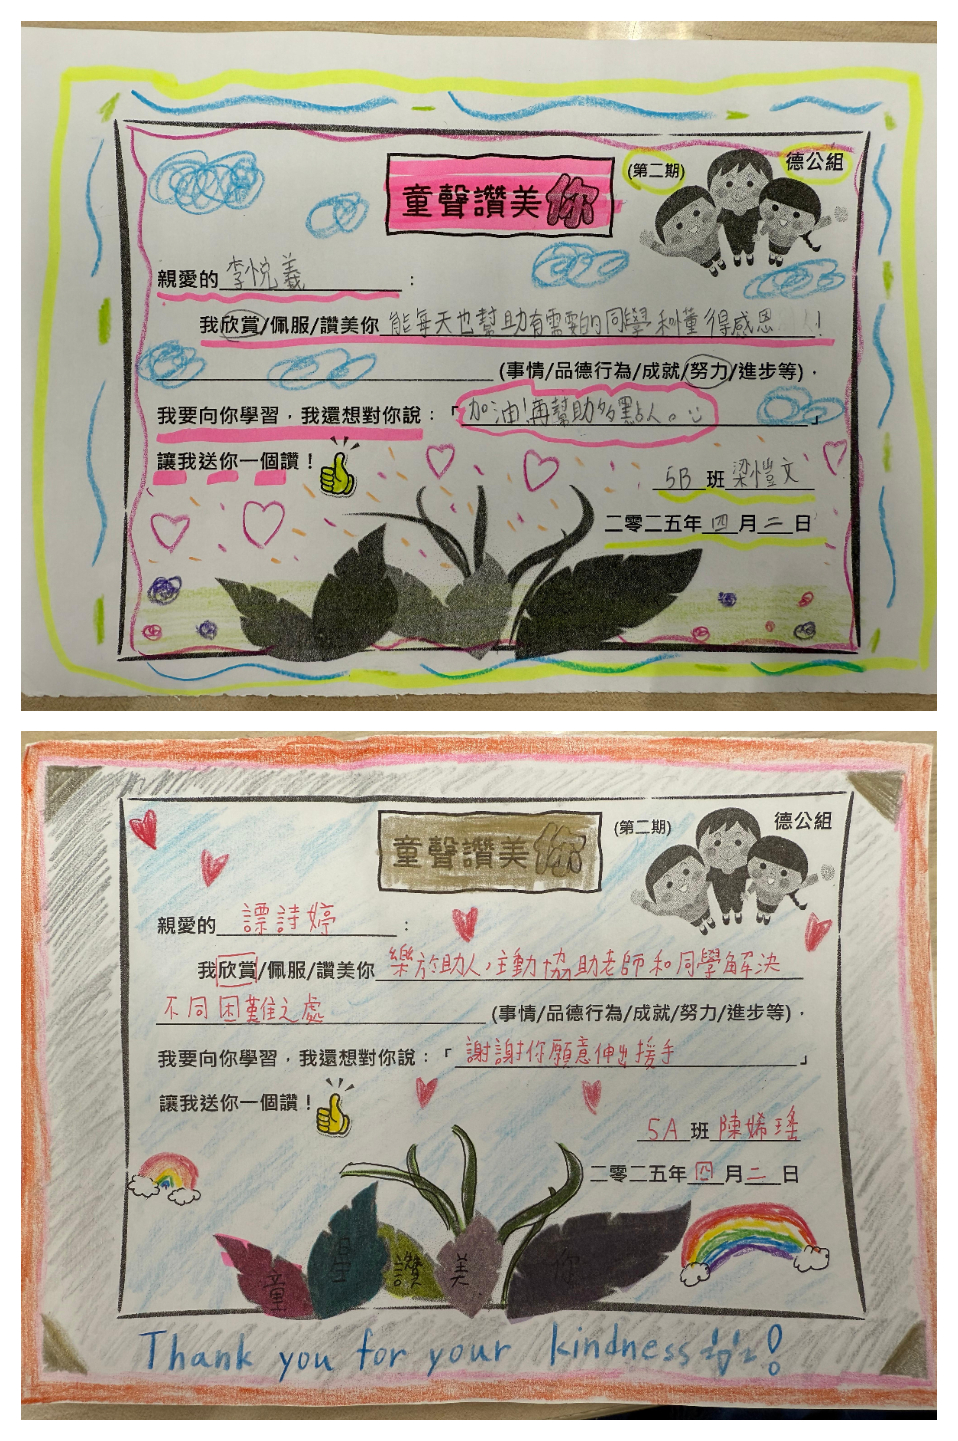 童聲讚美你
(第二期)
德公組
親愛的李悅義：
我欣賞/佩服/讚美你 能每天也幫助有需要的同學和懂得感恩！
(事情/品德行為/成就/努力/進步等)，
我要向你學習，我還想對你說：「加油！再幫助多點人。」
讓我送你一個讚！
5B 班 梁愷文
二零二五年四月二日
童聲讚美你
(第二期)
德公組
親愛的譚詩婷：
我欣賞/佩服/讚美你 樂於助人，主動協助老師和同學解決
不同困難之處 (事情/品德行為/成就/努力/進步等)，
我要向你學習，我還想對你說：「謝謝你願意伸出援手」
讓我送你一個讚！
5A 班 陳婼瑤
二零二五年四月二日
童 讚 美 你
Thank you for your kindness !